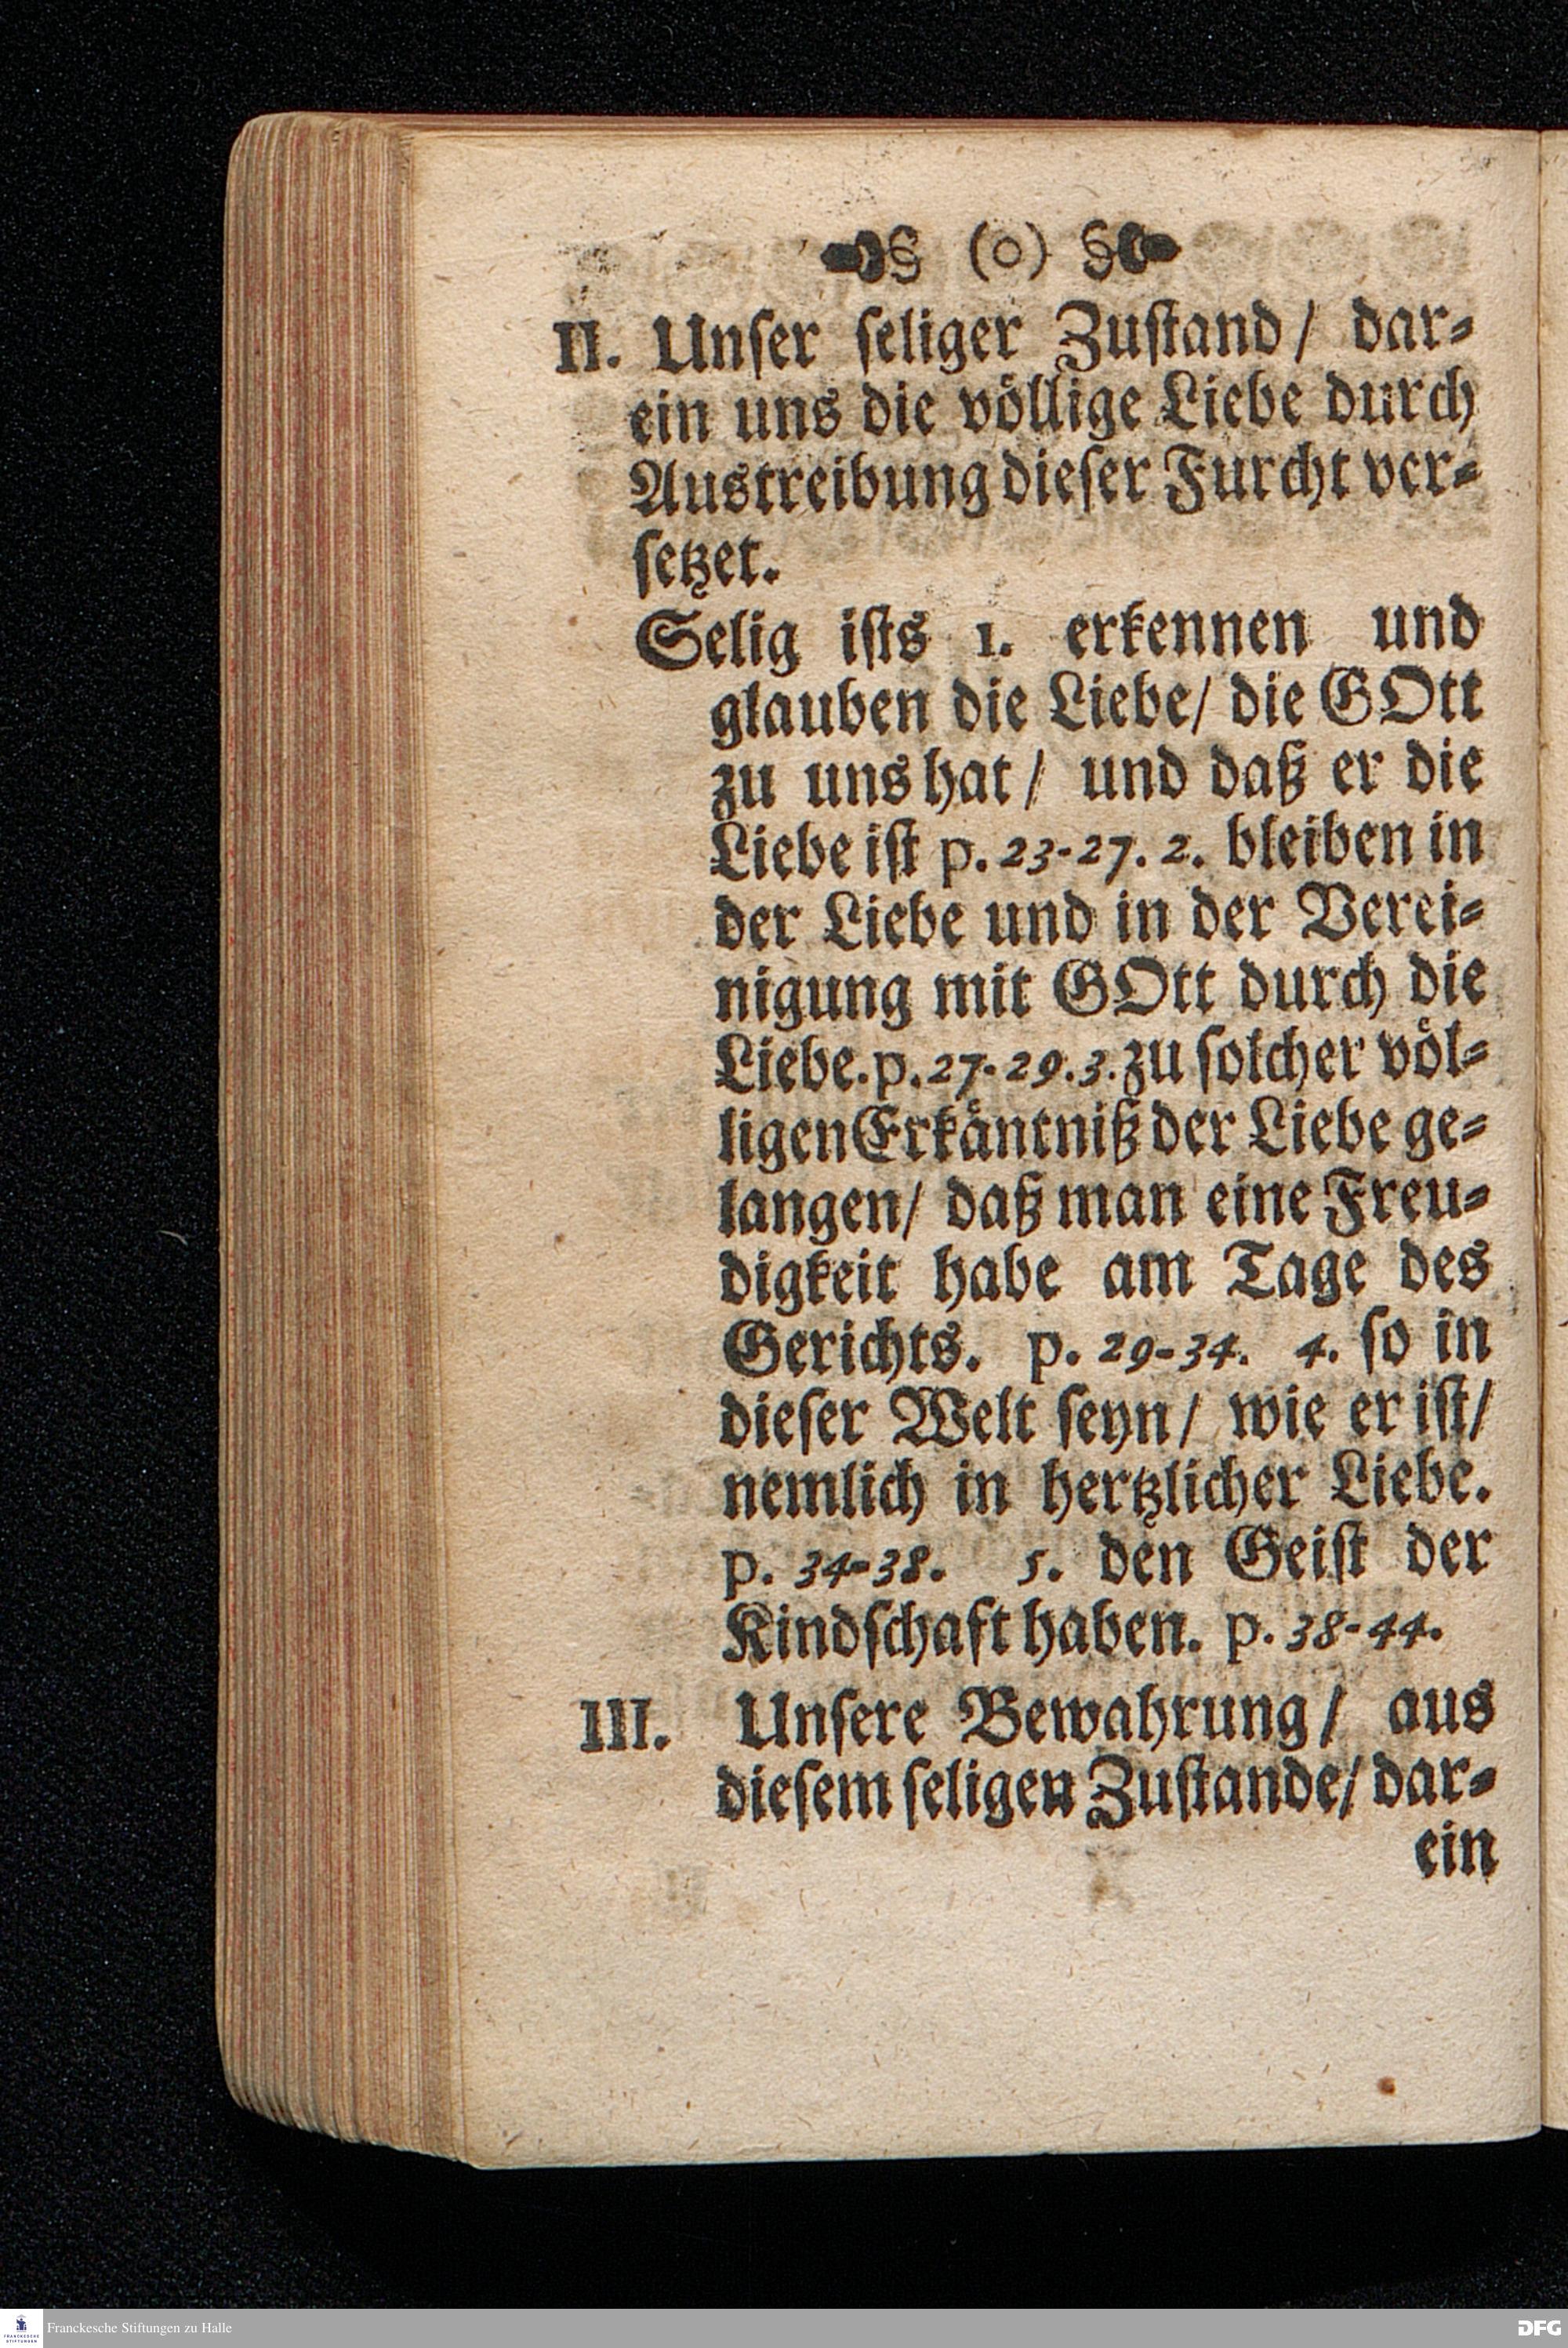 § (o) §
II. Unſer ſeliger Zuſtand/ dar⸗
ein uns die voͤllige Liebe durch
Austreibung dieſer Furcht ver⸗
ſetzet.
Selig iſts 1. erkennen und
glauben die Liebe/ die GOtt
zu uns hat/ und daß er die
Liebe iſt p. 23-27. 2. bleiben in
der Liebe und in der Verei⸗
nigung mit GOtt durch die
Liebe. p. 27-29. 3. zu ſolcher voͤl⸗
ligen Erkaͤntniß der Liebe ge⸗
langen/ daß man eine Freu⸗
digkeit habe am Tage des
Gerichts. p. 29-34. 4. ſo in
dieſer Welt ſeyn/ wie er iſt/
nemlich in hertzlicher Liebe.
p. 34-38. 5. den Geiſt der
Kindſchaft haben. p. 38-44.
III. Unſere Bewahrung/ aus
dieſem ſeligen Zuſtande/ dar⸗
ein
FRANCKESCHE STIFTUNGEN
Franckesche Stiftungen zu Halle
DFG